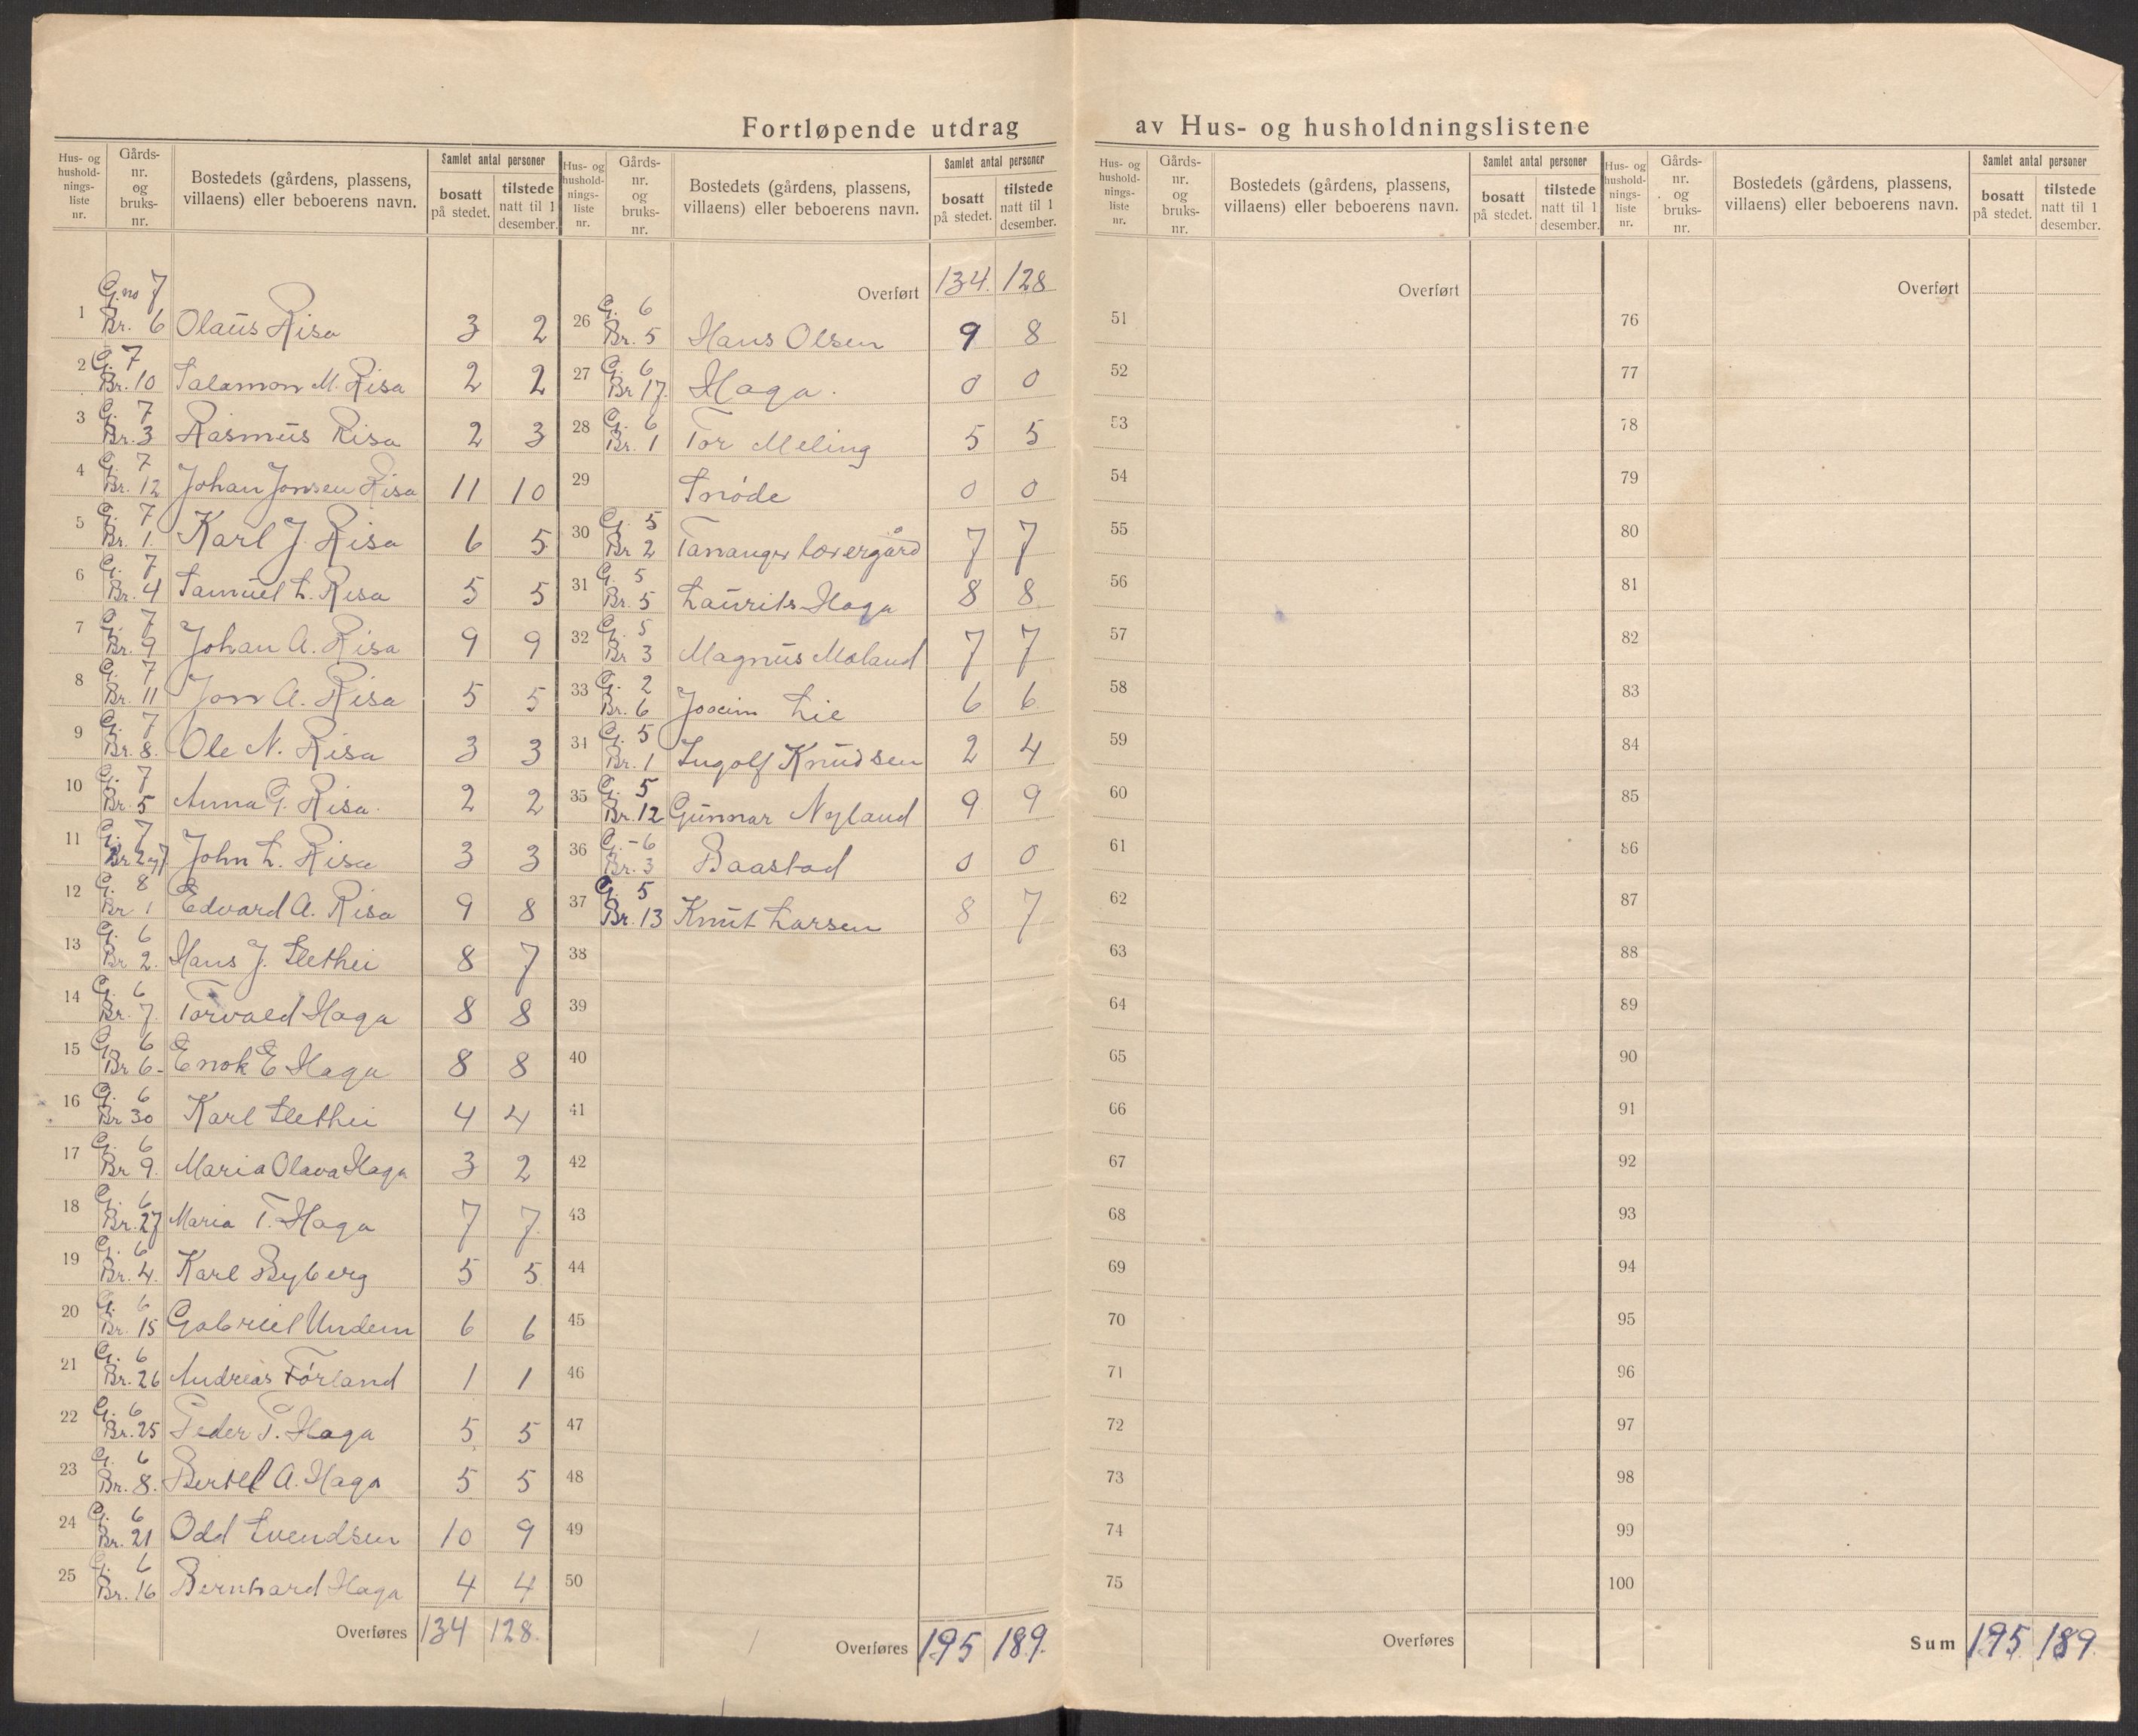 Fortløpende utdrag av Hus- og husholdningslistene
Hus- og hushold-nings-liste nr. | Gårds-nr. og bruks-nr. | Bostedets (gårdens, plassens, villaens) eller beboerens navn. | Samlet antal personer | bosatt på stedet. | tilstede natt til 1 desember.
1 G.no 7 Br. 6 Olaus Risa 3 2
2 G. 7 Br. 10 Salamon M. Risa 2 2
3 G. 7 Br. 3 Rasmus Risa 2 3
4 G. 7 Br. 12 Johan Jonsen Risa 11 10
5 G. 7 Br. 1. Karl J. Risa 6 5
6 G. 7 Br. 4 Samuel L. Risa 5 5
7 G. 7 Br. 9 Johan A. Risa 9 9
8 G. 7 Br. 11 Jon A. Risa 5 5
9 G. 7 Br. 8. Ole N. Risa 3 3
10 G. 7 Br. 5 Anna G. Risa. 2 2
11 G. 7 Br. 2 og 7 John L. Risa 3 3
12 G. 8 Br 1 Edvard A. Risa 9 8
13 G. 6 Br 2. Hans J. Slethei 8 7
14 G. 6 Br. 7. Torvald Haga 8 8
15 G. 6 Br 6- Enok E Haga 8 8
16 G. 6 Br 30 Karl Slethei 4 4
17 G. 6 Br 9. Maria Olava Haga 3 2
18 G. 6 Br. 27 Maria T. Haga 7 7
19 G. 6 Br. 4. Karl Byberg 5 5
20 G. 6 Br. 15 Gabriel Undem 6 6
21 G. 6 Br. 26 Andreas Førland 1 1
22 G. 6 Br. 25 Peder T. Haga 5 5
23 G. 6 Br. 8. Bertel A. Haga 5 5
24 G. 6 Br. 21 Odd Svendsen 10 9
25 G. 6 Br. 16 Bernhard Haga 4 4
Overføres 134 128.
Hus- og hushold-nings-liste nr. | Gårds-nr. og bruks-nr. | Bostedets (gårdens, plassens, villaens) eller beboerens navn. | Samlet antal personer | bosatt på stedet. | tilstede natt til 1 desember.
Overført 134. 128
26 G. 6 Br. 5 Hans Olsen 9 8
27 G. 6 Br 17. Haga. 0 0
28 G. 6 Br. 1 Tor Meling 5 5
29 Snøde 0 0
30 G. 5 Br 2 Tananger 7 7
31 G. 5 Br. 5 Laurits Haga 8 8
32 G. 5 Br 3 Magnus Moland 7 7
33 G. 2 Br. 6 Joacim Lie 6 6
34 G. 5 Br. 1 Ingolf Knudsen 2 4
35 G. 5 Br. 12 Gunnar Nyland 9 9
36 G. - 6 Br. 3 Baastad 0 0
37 G. 5 Br. 13 Knut Larsen 8 7
38
39
40
41
42
43
44
45
46
47
48
49
50
Overføres 195 189.
Hus- og hushold-nings-liste nr. | Gårds-nr. og bruks-nr. | Bostedets (gårdens, plassens, villaens) eller beboerens navn. | Samlet antal personer | bosatt på stedet. | tilstede natt til 1 desember.
Overført
51
52
53
54
55
56
57
58
59
60
61
62
63
64
65
66
67
68
69
70
71
72
73
74
75
Overføres
Hus- og hushold-nings-liste nr. | Gårds-nr. og bruks-nr. | Bostedets (gårdens, plassens, villaens) eller beboerens navn. | Samlet antal personer | bosatt på stedet. | tilstede natt til 1 desember.
Overført
76
77
78
79
80
81
82
83
84
85
86
87
88
89
90
91
92
93
94
95
96
97
98
99
100
Sum 195 189